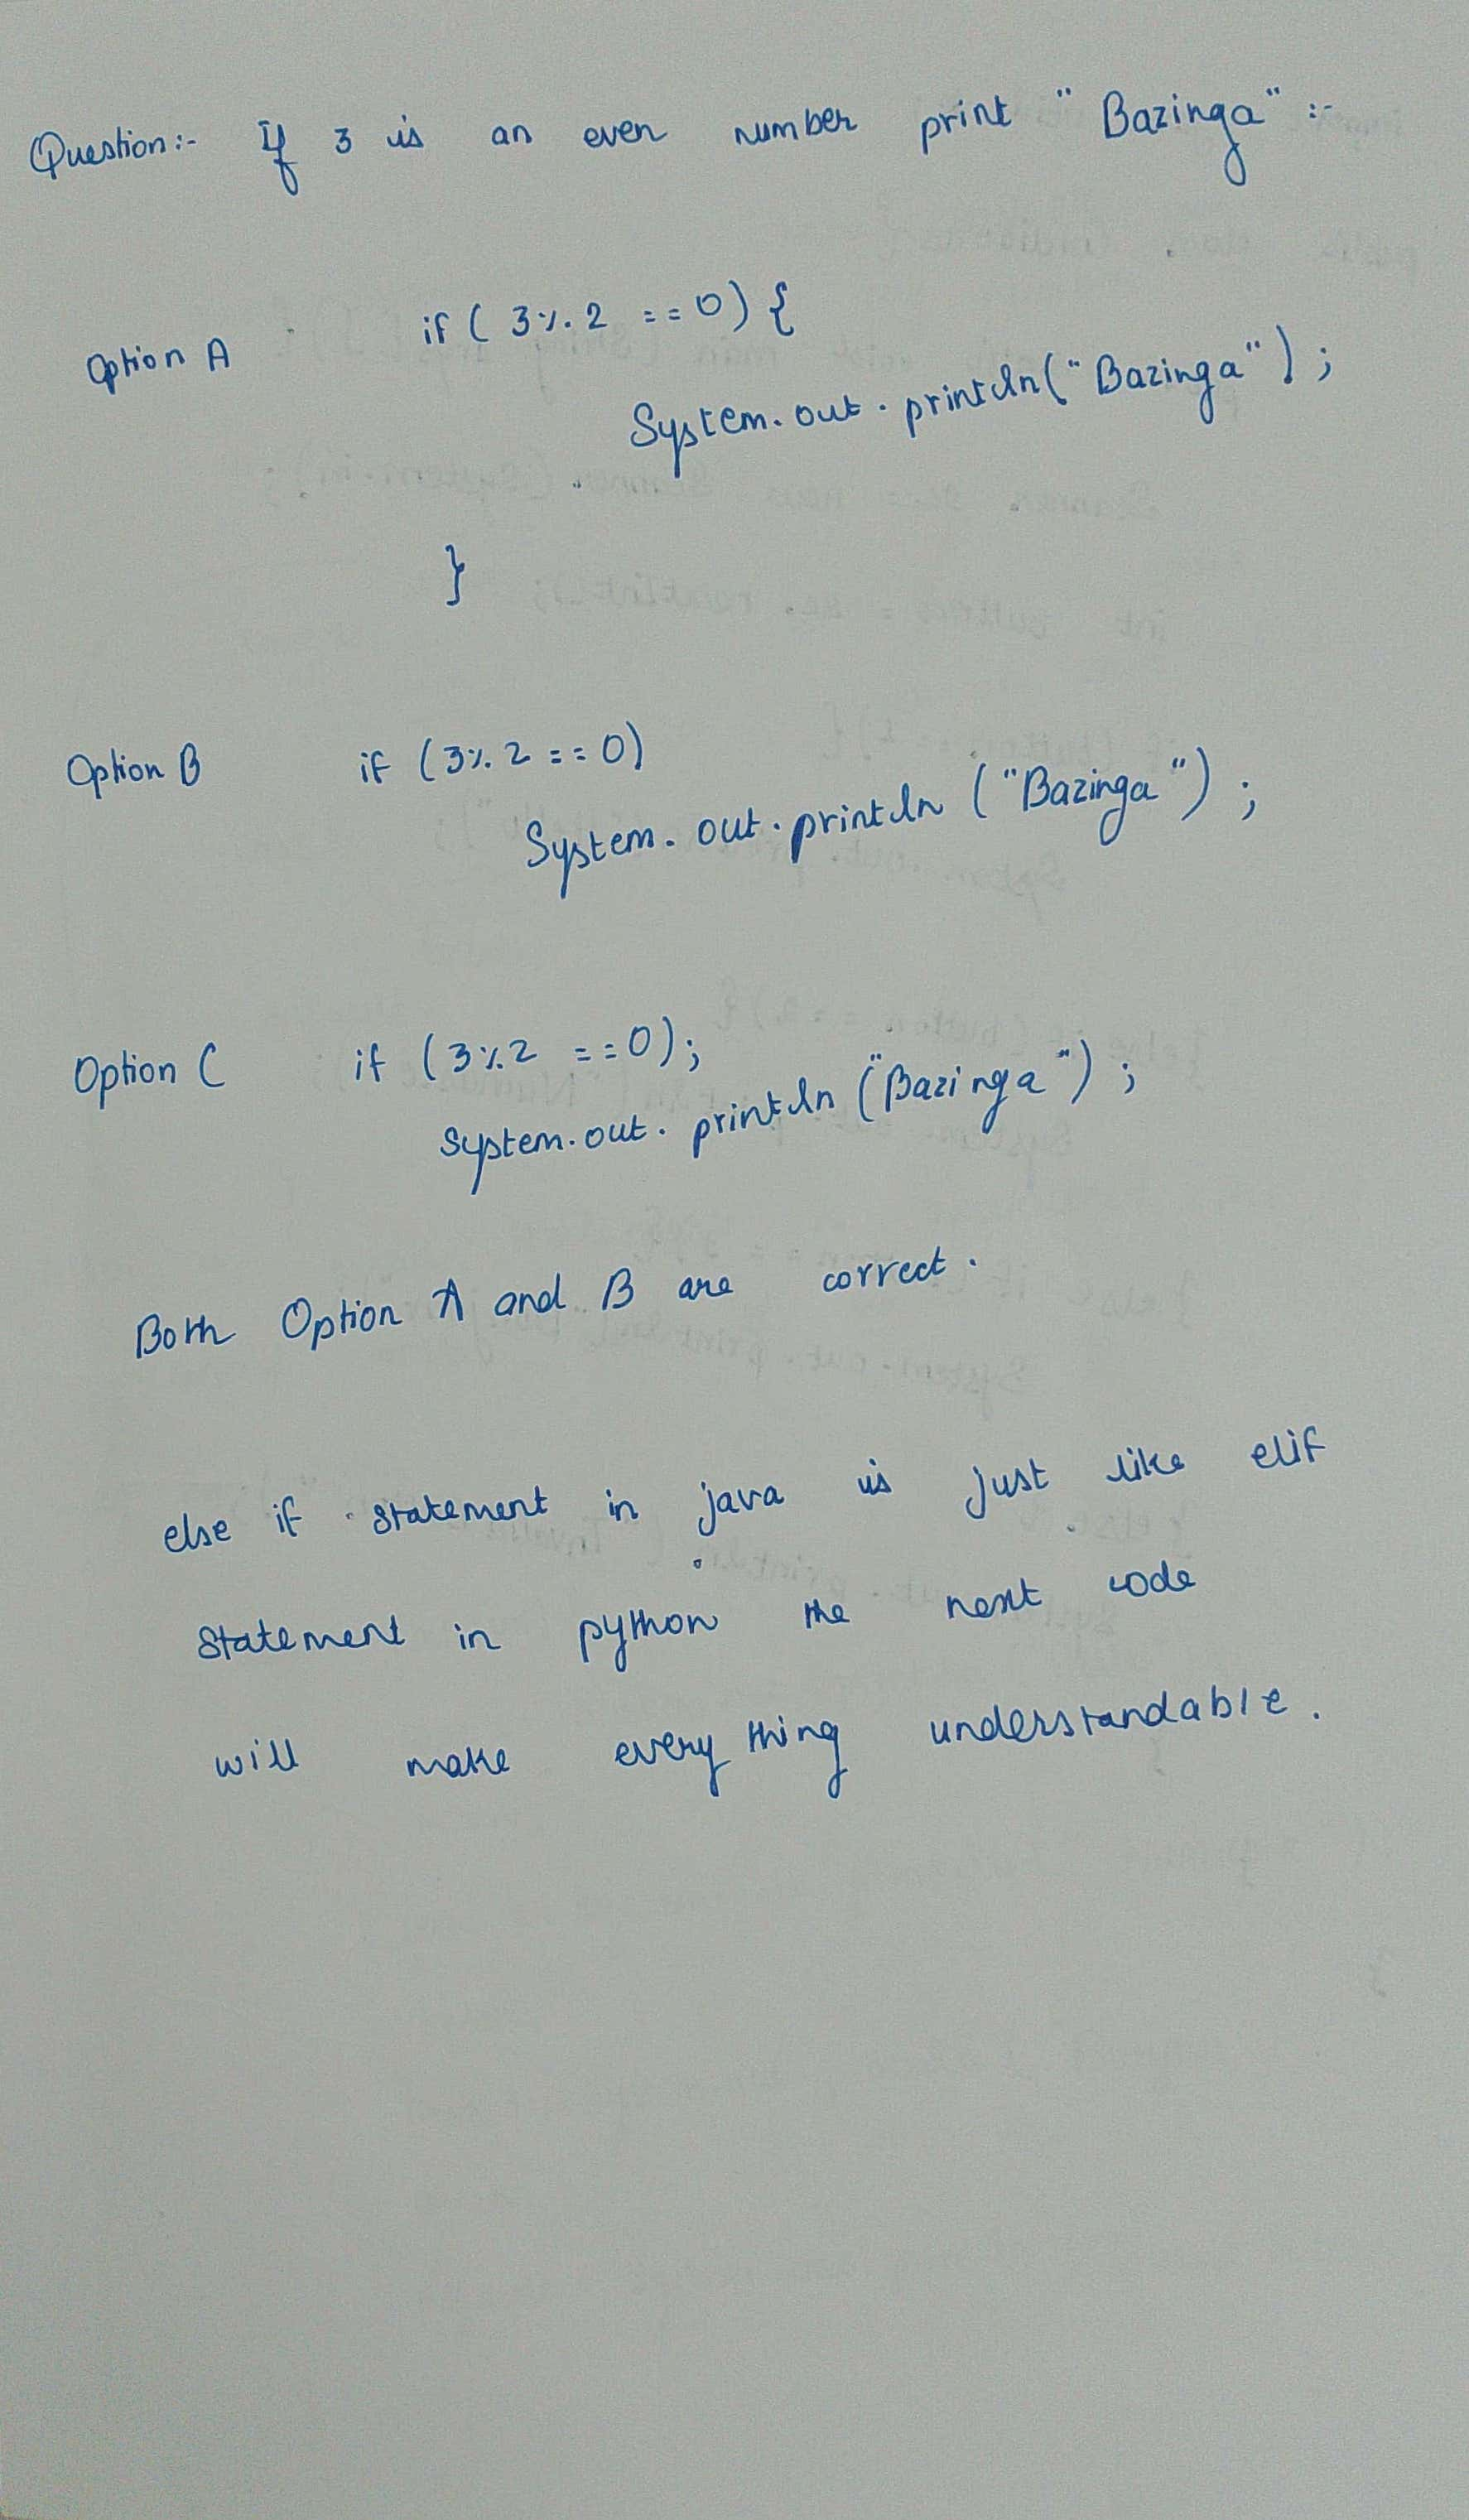 Question:- If 3 is an even number print "Bazinga" :-
Option A if ( 3 % 2 == 0) {
System.out.println("Bazinga");
}
Option B if (3 % 2 == 0)
System.out.println ("Bazinga");
Option C if (3 % 2 == 0);
System.out.println ("Bazinga");
Both Option A and B are correct.
else if statement in java is just like elif
statement in python the next code
will make every thing understandable.